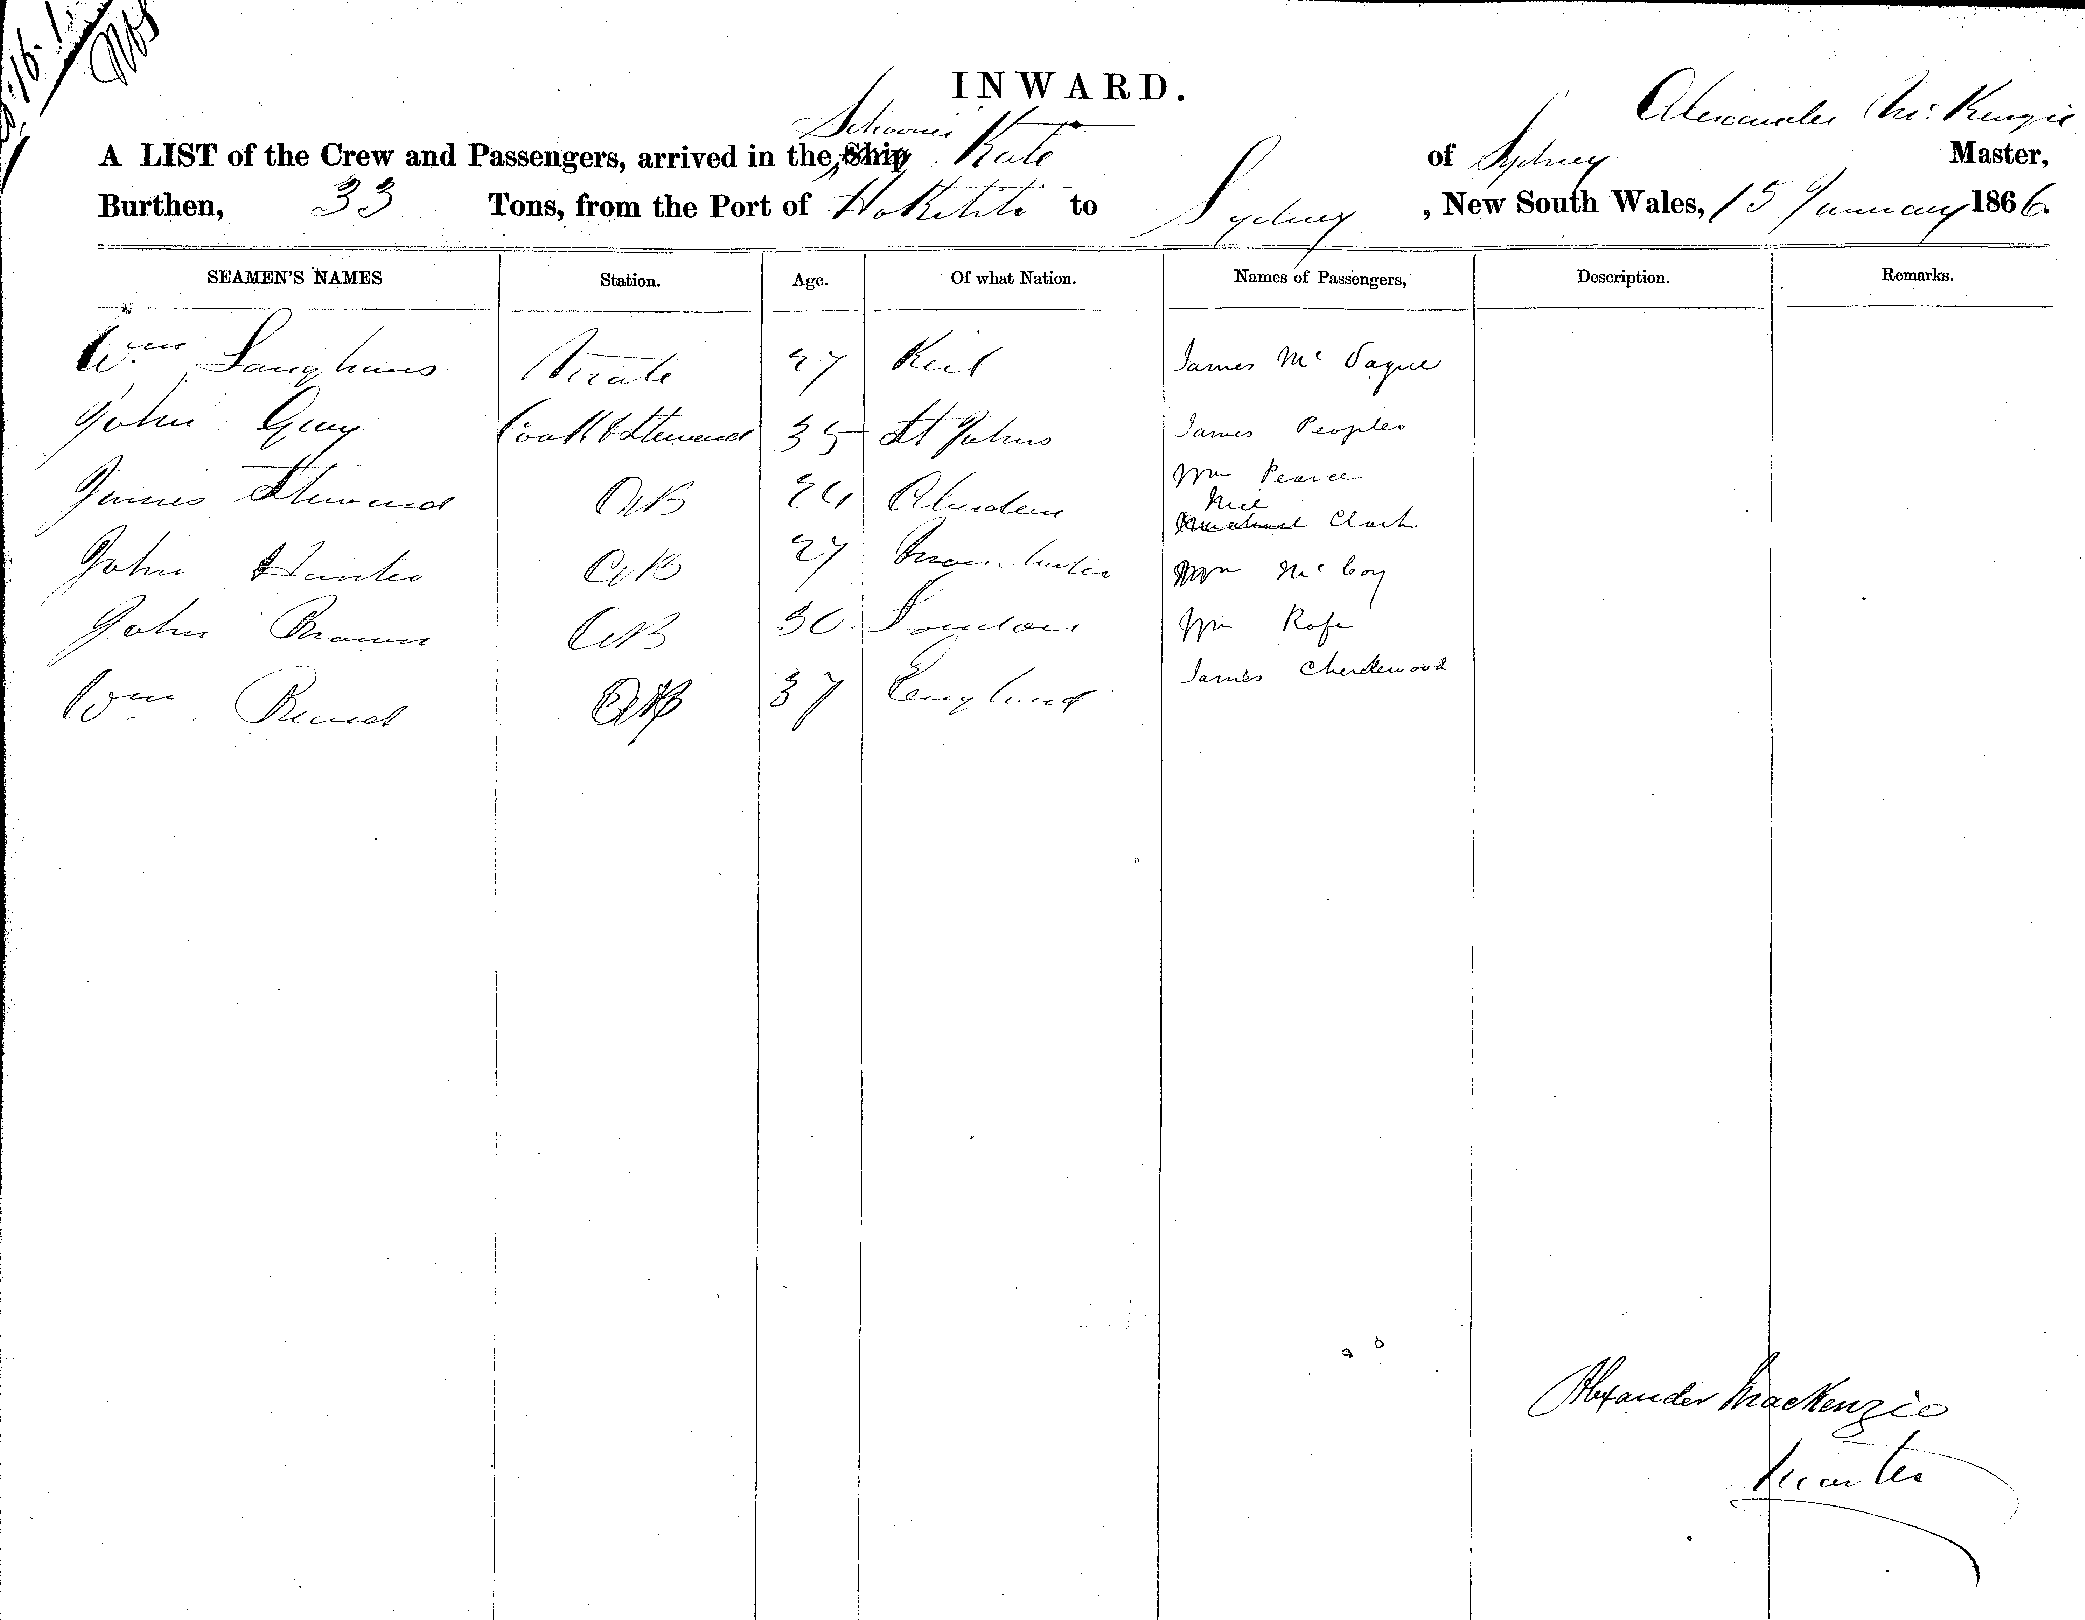 INWARD.
Alexander Mc. Kenzie
Schooner
A LIST of the Crew and Passengers, arrived in the Ship Kate of Sydney Master,
Burthen, 33 Tons, from the Port of Hokitiki to Sydney, New South Wales, 15 January 1866.
SEAMEN'S NAMES Station. Age. Of what Nation. Names of Passengers, Description. Remarks.
Wm Mate 27 Keil James Mc
John Guy Cook & Steward 35 St Johns James Peoples
James Steward AB Aberdeen Wm Pearce
Clark
John Hunter AB 27 Wm McCoy
John Brown AB 30 London Wm Rofe
Wm AB 37 England James
Alexander MacKenzie
Master